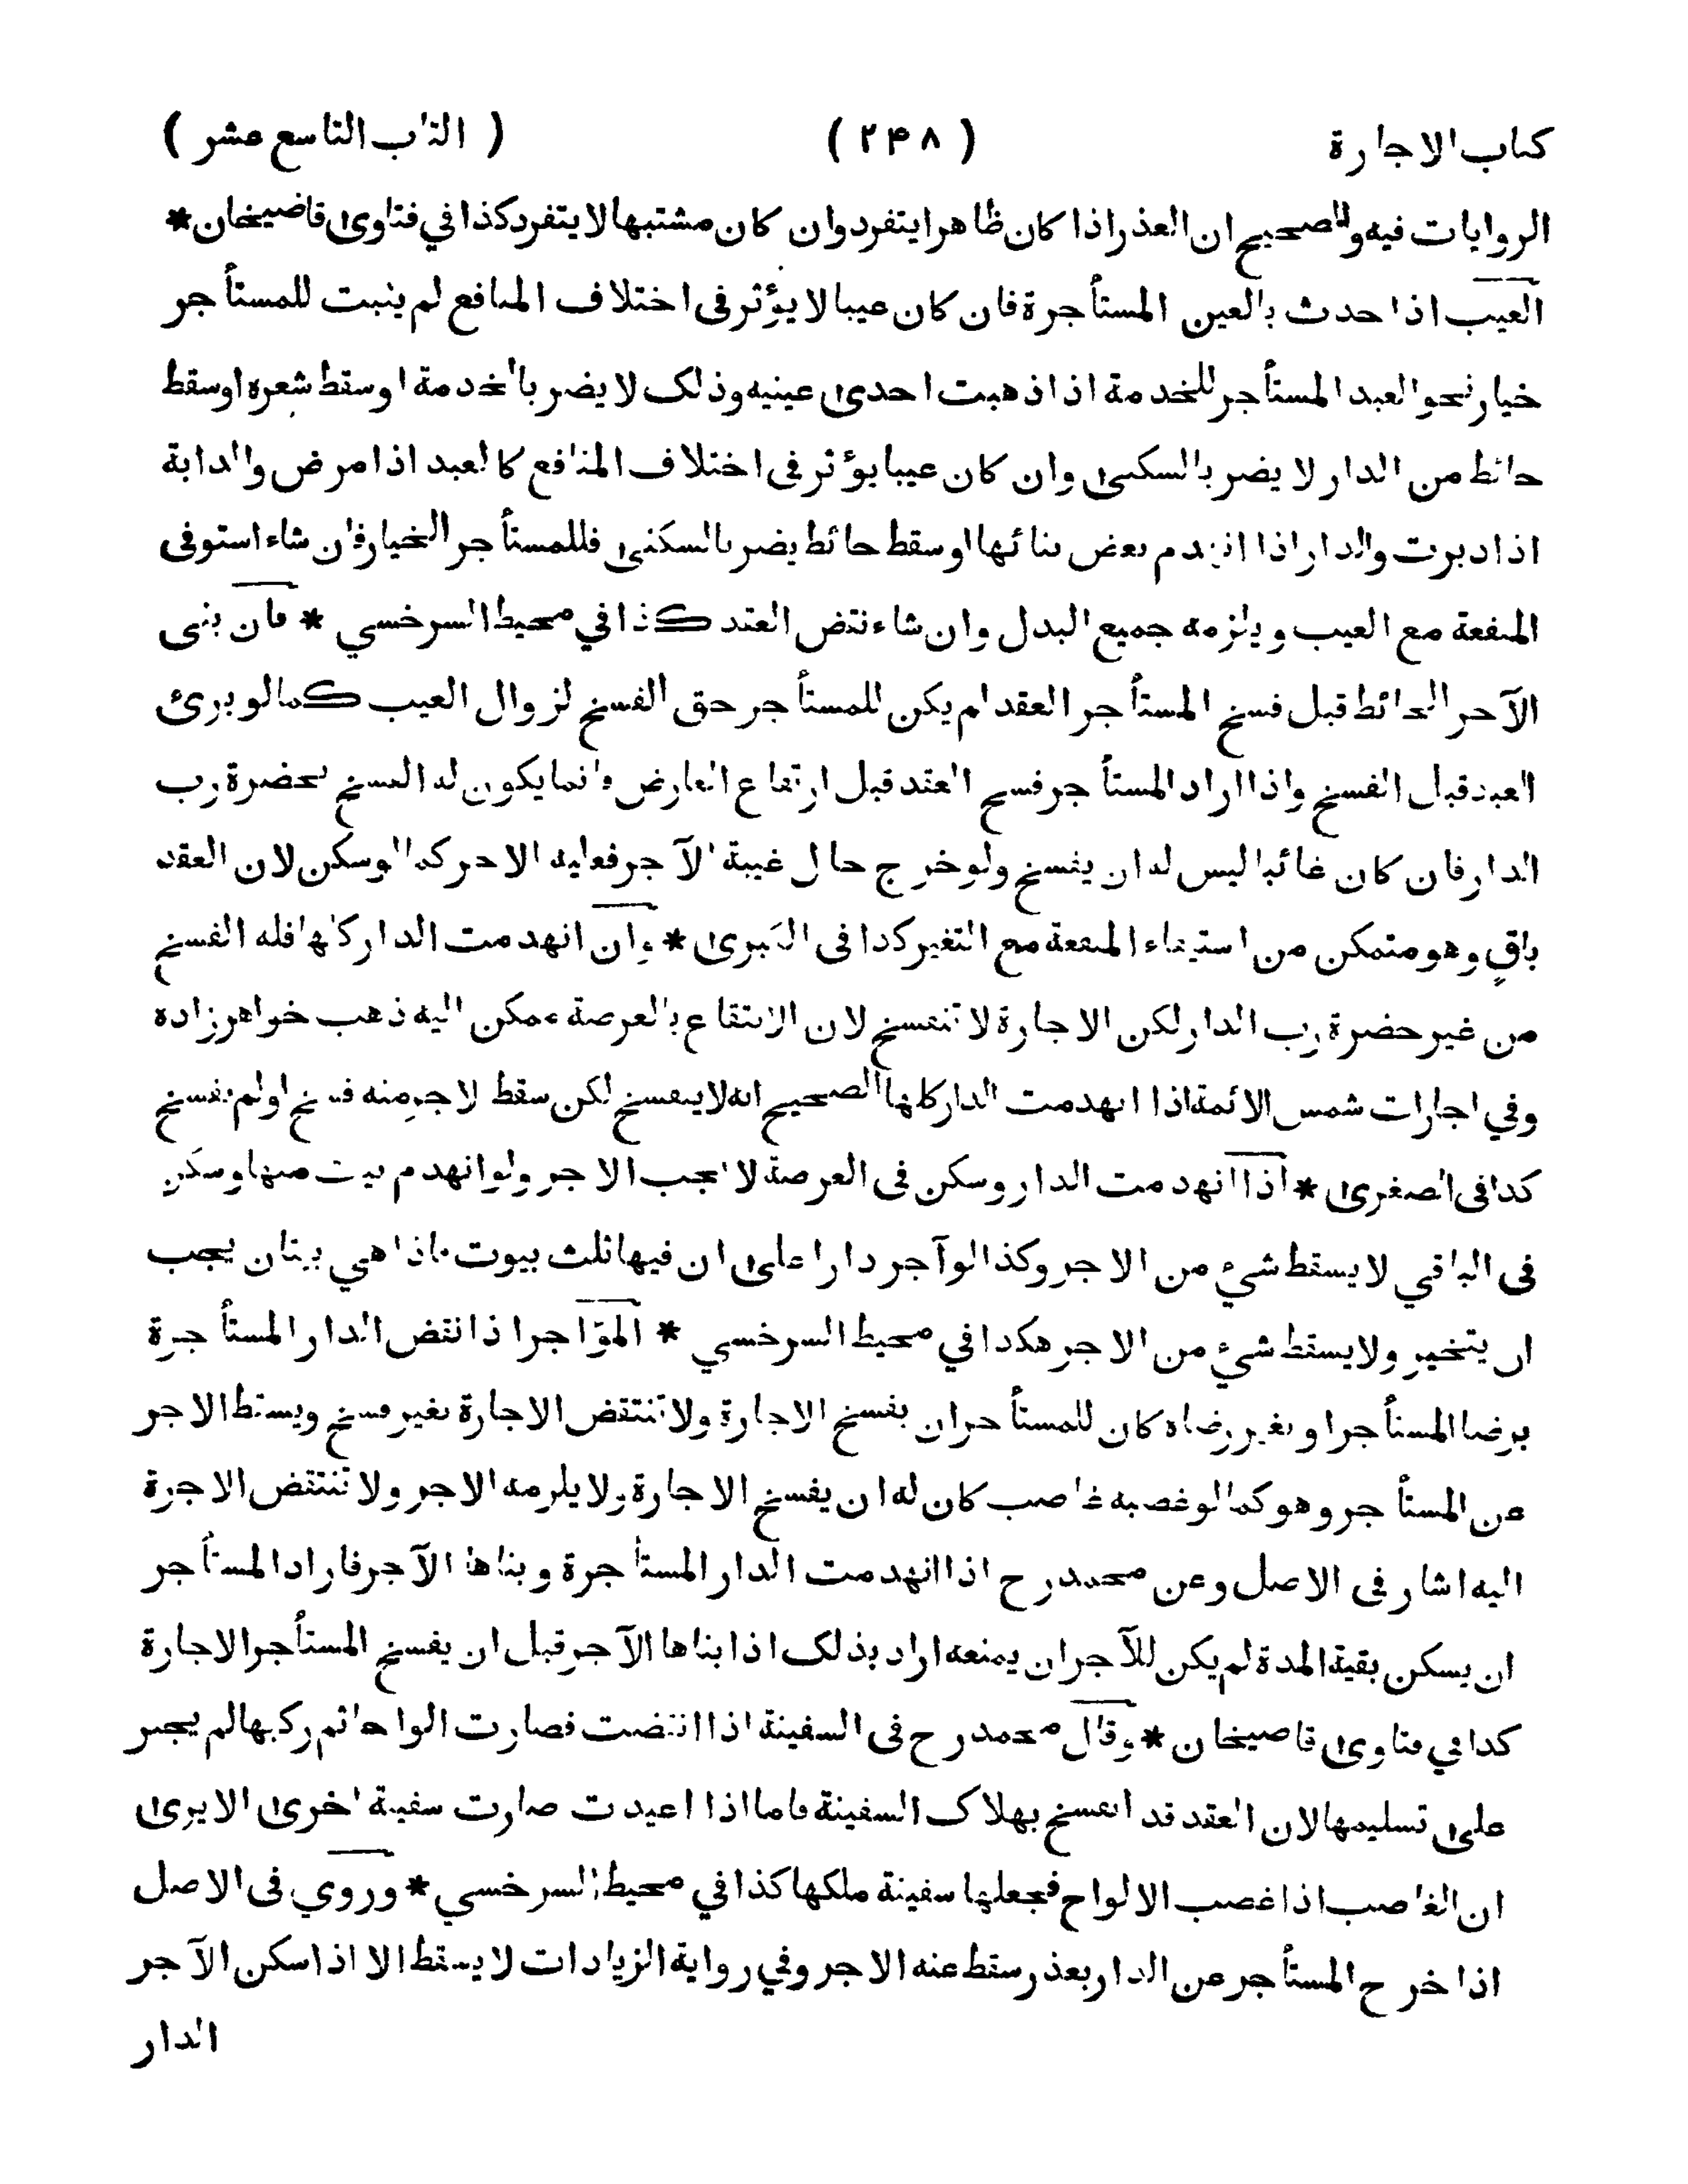 كتاب الاجارة ( ٢۴٨ ) ( الباب التاسع عشر )
الروايات فيه والصحيح ان العذر اذا كان ظاهرا يتفرد وان كان مشتبها لا يتفرد كذا في فتاوى قاضيخان *
العيب اذا حدث بالعين المستأجرة فان كان عيبا لا يؤثر فى اختلاف المنافع لم يثبت للمستأجر
خيار نحو العبد المستأجر للخدمة اذا ذهبت احدى عينيه وذلك لا يضر بالخدمة او سقط شعره او سقط
حائط من الدار لا يضر بالسكنى وان كان عيبا يؤثر فى اختلاف المنافع كالعبد اذا مرض والدابة
اذا دبرت والدار اذا انهدم بعض بنائها او سقط حائط يضر بالسكنى فللمستأجر الخيار فان شاء استوفى
المنفعة مع العيب ويلزمه جميع البدل وان شاء نقض العقد كذا في محيط السرخسي * فان بنى
الآجر الحائط قبل فسخ المستأجر العقد لم يكن للمستأجر حق الفسخ لزوال العيب كما لو برئ
العبد قبل الفسخ واذا اراد المستأجر فسخ العقد قبل ارتفاع العارض فانما يكون له الفسخ بحضرة رب
الدار فان كان غائبا ليس له ان يفسخ ولو خرج حال غيبة الآجر فعليه الاجر كما لو سكن لان العقد
باقٍ وهو متمكن من استيفاء المنفعة مع التغير كذا فى الكبرى * وان انهدمت الدار كلها فله الفسخ
من غير حضرة رب الدار لكن الاجارة لا تنفسخ لان الانتفاع بالعرصة ممكن اليه ذهب خواهرزاده
وفي اجارات شمس الائمة اذا انهدمت الدار كلها الصحيح انه لا ينفسخ لكن سقط الاجر منه فسخ او لم يفسخ
كذا فى الصغرى * اذا انهدمت الدار وسكن فى العرصة لا يجب الاجر ولو انهدم بيت منها وسكن
فى الباقي لا يسقط شيء من الاجر وكذا لو آجر دارا على ان فيها ثلث بيوت فاذا هي بيتان يجب
ان يتخير ولا يسقط شيء من الاجر هكذا في محيط السرخسي * المؤاجر اذا نقض الدار المستأجرة
برضا المستأجر او بغير رضاه كان للمستأجر ان يفسخ الاجارة ولا تنتقض الاجارة بغير فسخ ويسقط الاجر
عن المستأجر وهو كما لو غصبه غاصب كان له ان يفسخ الاجارة ولا يلزمه الاجر ولا تنتقض الاجرة
اليه اشار فى الاصل وعن محمد رح اذا انهدمت الدار المستأجرة وبناها الآجر فاراد المستأجر
ان يسكن بقية المدة لم يكن للآجر ان يمنعه اراد بذلك اذا بناها الآجر قبل ان يفسخ المستأجر الاجارة
كذا في فتاوى قاضيخان * وقال محمد رح فى السفينة اذا انتقضت فصارت الواحا ثم ركبها لم يجبر
على تسليمها لان العقد قد انفسخ بهلاك السفينة فاما اذا اعيدت صارت سفينة اخرى الا يرى
ان الغاصب اذا غصب الالواح فجعلها سفينة ملكها كذا في محيط السرخسي * وروي فى الاصل
اذا خرج المستأجر عن الدار بعذر سقط عنه الاجر وفي رواية الزيادات لا يسقط الا اذا سكن الآجر
الدار